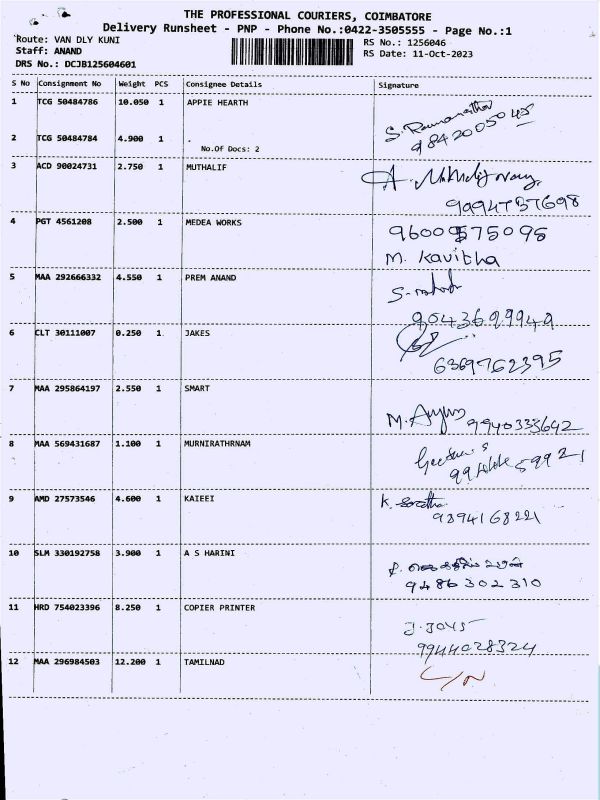 THE PROFESSIONAL COURIERS, COIMBATORE
Delivery Runsheet - PNP - Phone No.:0422-3505555 - Page No.:1
Route: VAN DLY KUNI
Staff: ANAND
DRS No.: DCJB125604601
RS No.: 1256046
RS Date: 11-Oct-2023
S No Consignment No Weight PCS Consignee Details Signature
1 TCG 50484786 10.050 1 APPIE HEARTH
2 TCG 50484784 4.900 1 .
No.Of Docs: 2
S. Ramanathan
9842005045
3 ACD 90024731 2.750 1 MUTHALIF
4 PGT 4561208 2.500 1 MEDEA WORKS
M. Kavitha
5 MAA 292666332 4.550 1 PREM ANAND
9043699949
6 CLT 30111007 0.250 1 JAKES
6369762395
7 MAA 295864197 2.550 1 SMART
9940333642
8 MAA 569431687 1.100 1 MURNIRATHRNAM
9 AMD 27573546 4.600 1 KAIEEI
9894168221
10 SLM 330192758 3.900 1 A S HARINI
9486302310
11 HRD 754023396 8.250 1 COPIER PRINTER
9944028324
12 MAA 296984503 12.200 1 TAMILNAD